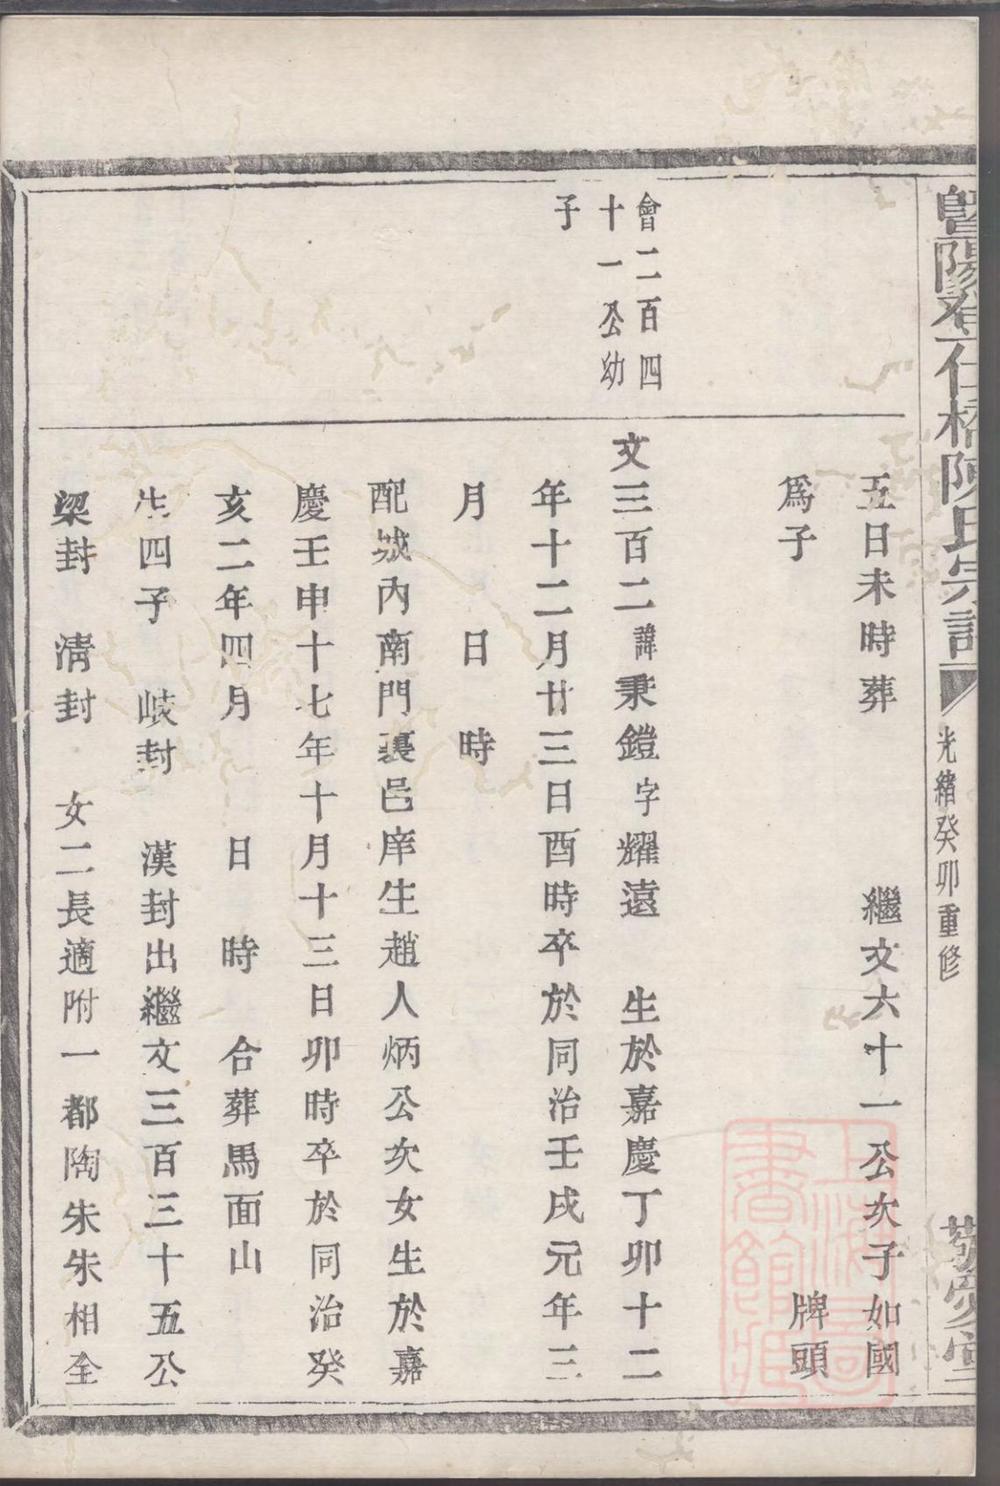 暨陽孝仁橋陳氏宗譜
光緒癸卯重修
五日未時葬 繼文六十一公次子如國
爲子 牌頭
會二百四
十一公幼
子
文三百二諱秉鎧字耀遠 生於嘉慶丁卯十二
年十二月廿三日酉時卒於同治壬戌元年三
月 日 時
配城內南門裏邑庠生趙人炳公次女生於嘉
慶壬申十七年十月十三日卯時卒於同治癸
亥二年四月 日 時 合葬馬面山
生四子 岐封 漢封出繼文三百三十五公
梁封 淸封 女二長適附一都陶朱朱相全
上海圖書館藏